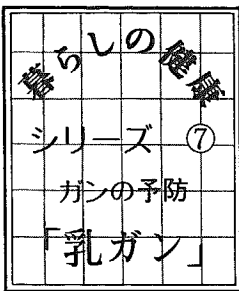 暮らしの健康
シリーズ ⑦
ガンの予防
「乳ガン」